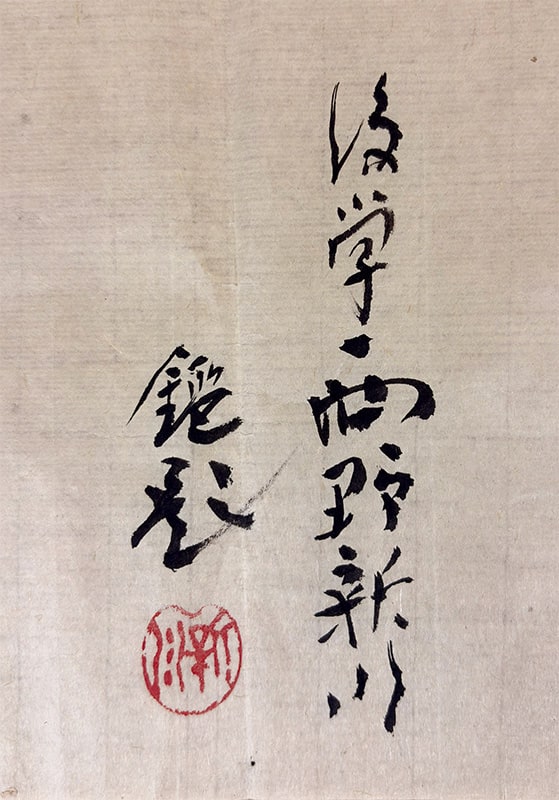 後学西野新川
鑑題